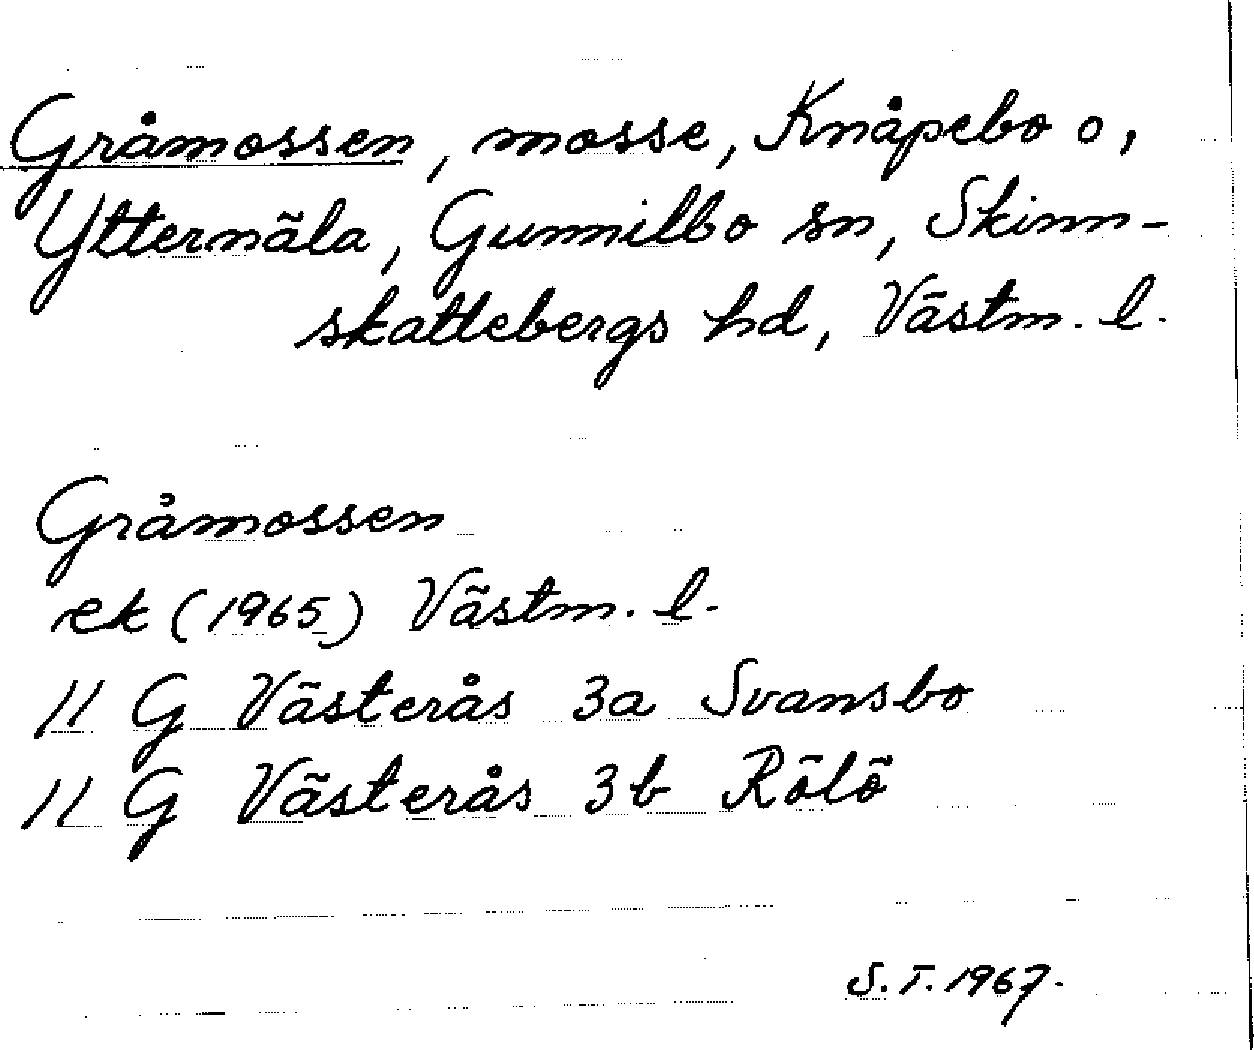 Gråmossen, mosse, Knåpebo o,
Ytternäla, Gunnilbo sn, Skinn-
skattebergs hd, Västm. l.
Gråmossen
ek (1965) Västm. l.
11 G Västerås 3a Svansbo
11 G Västerås 3b Rölö
S.T. 1967.